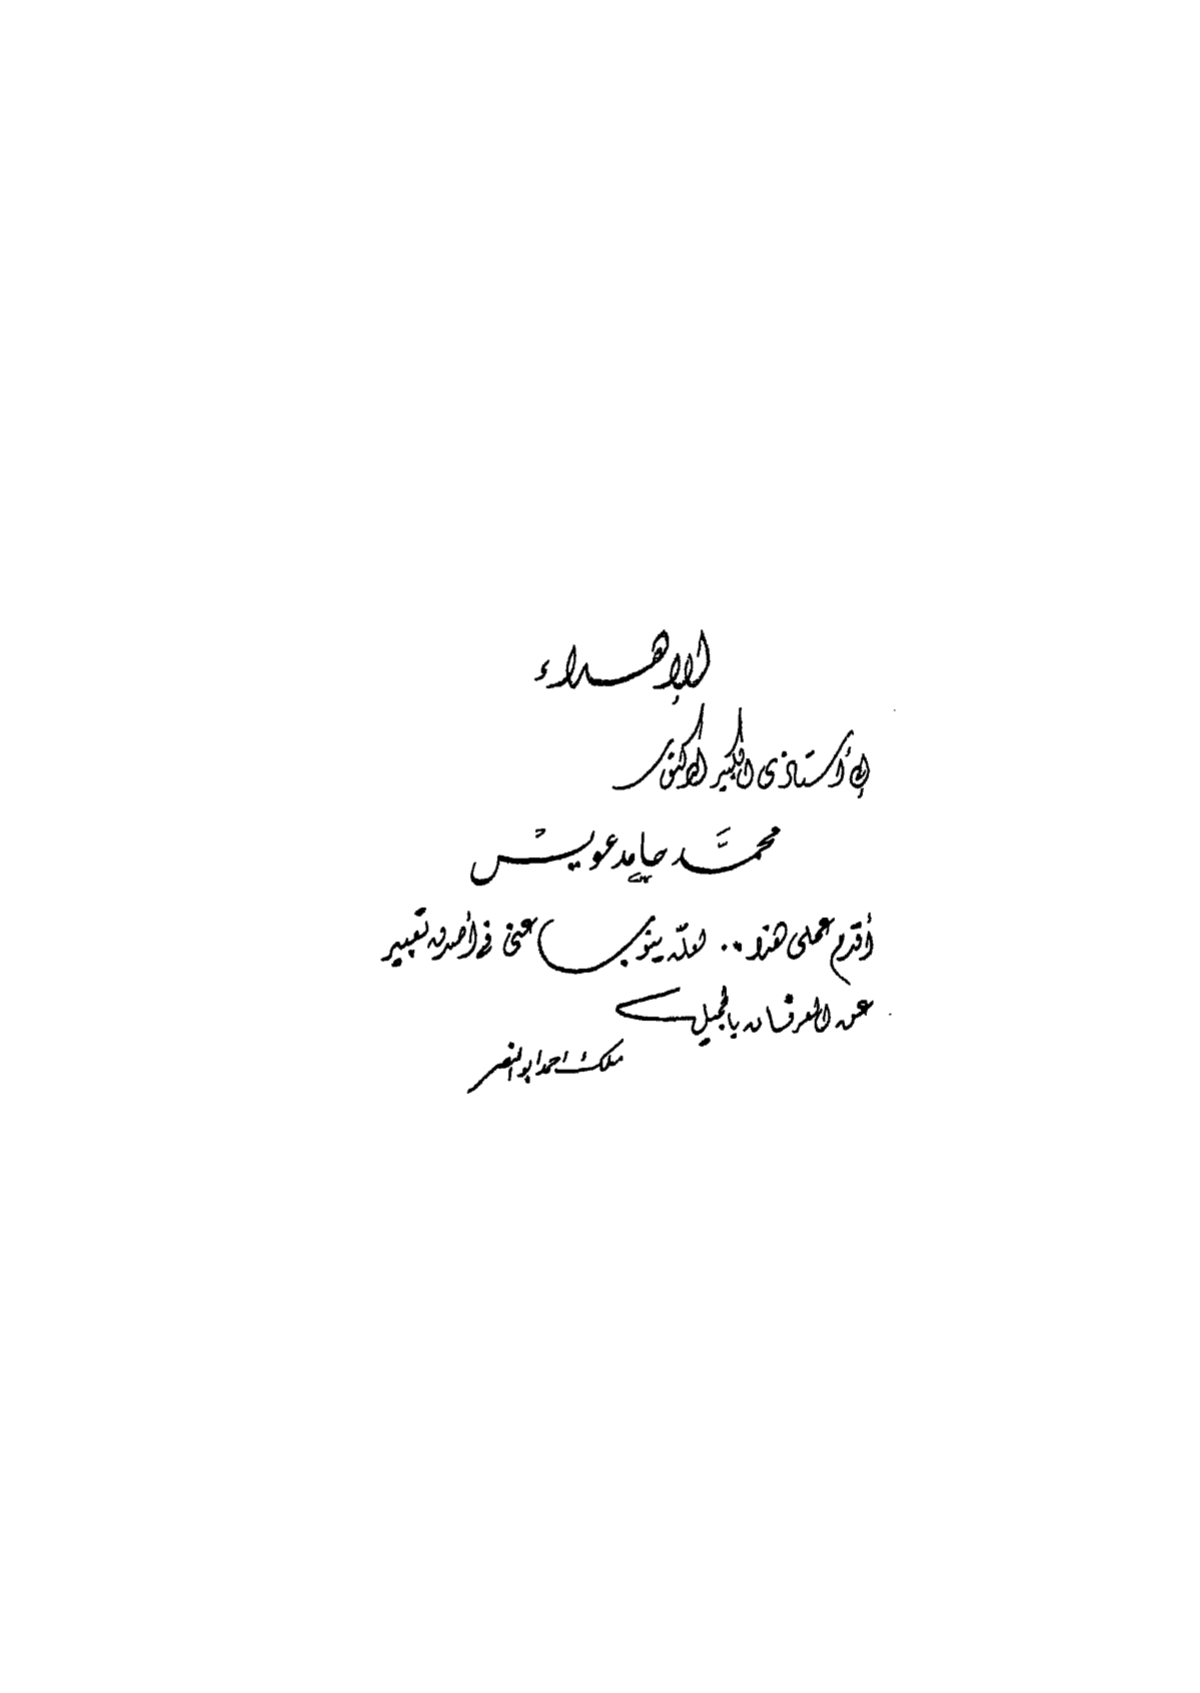 الإهداء
إلى أستاذى الكبير الدكتور
محمَّد حامد عويس
أقدم عملى هذا .. لعلّه ينوب عنى فى أصدق تعبير
عن العرفان بالجميل
ملك احمد ابو النصر